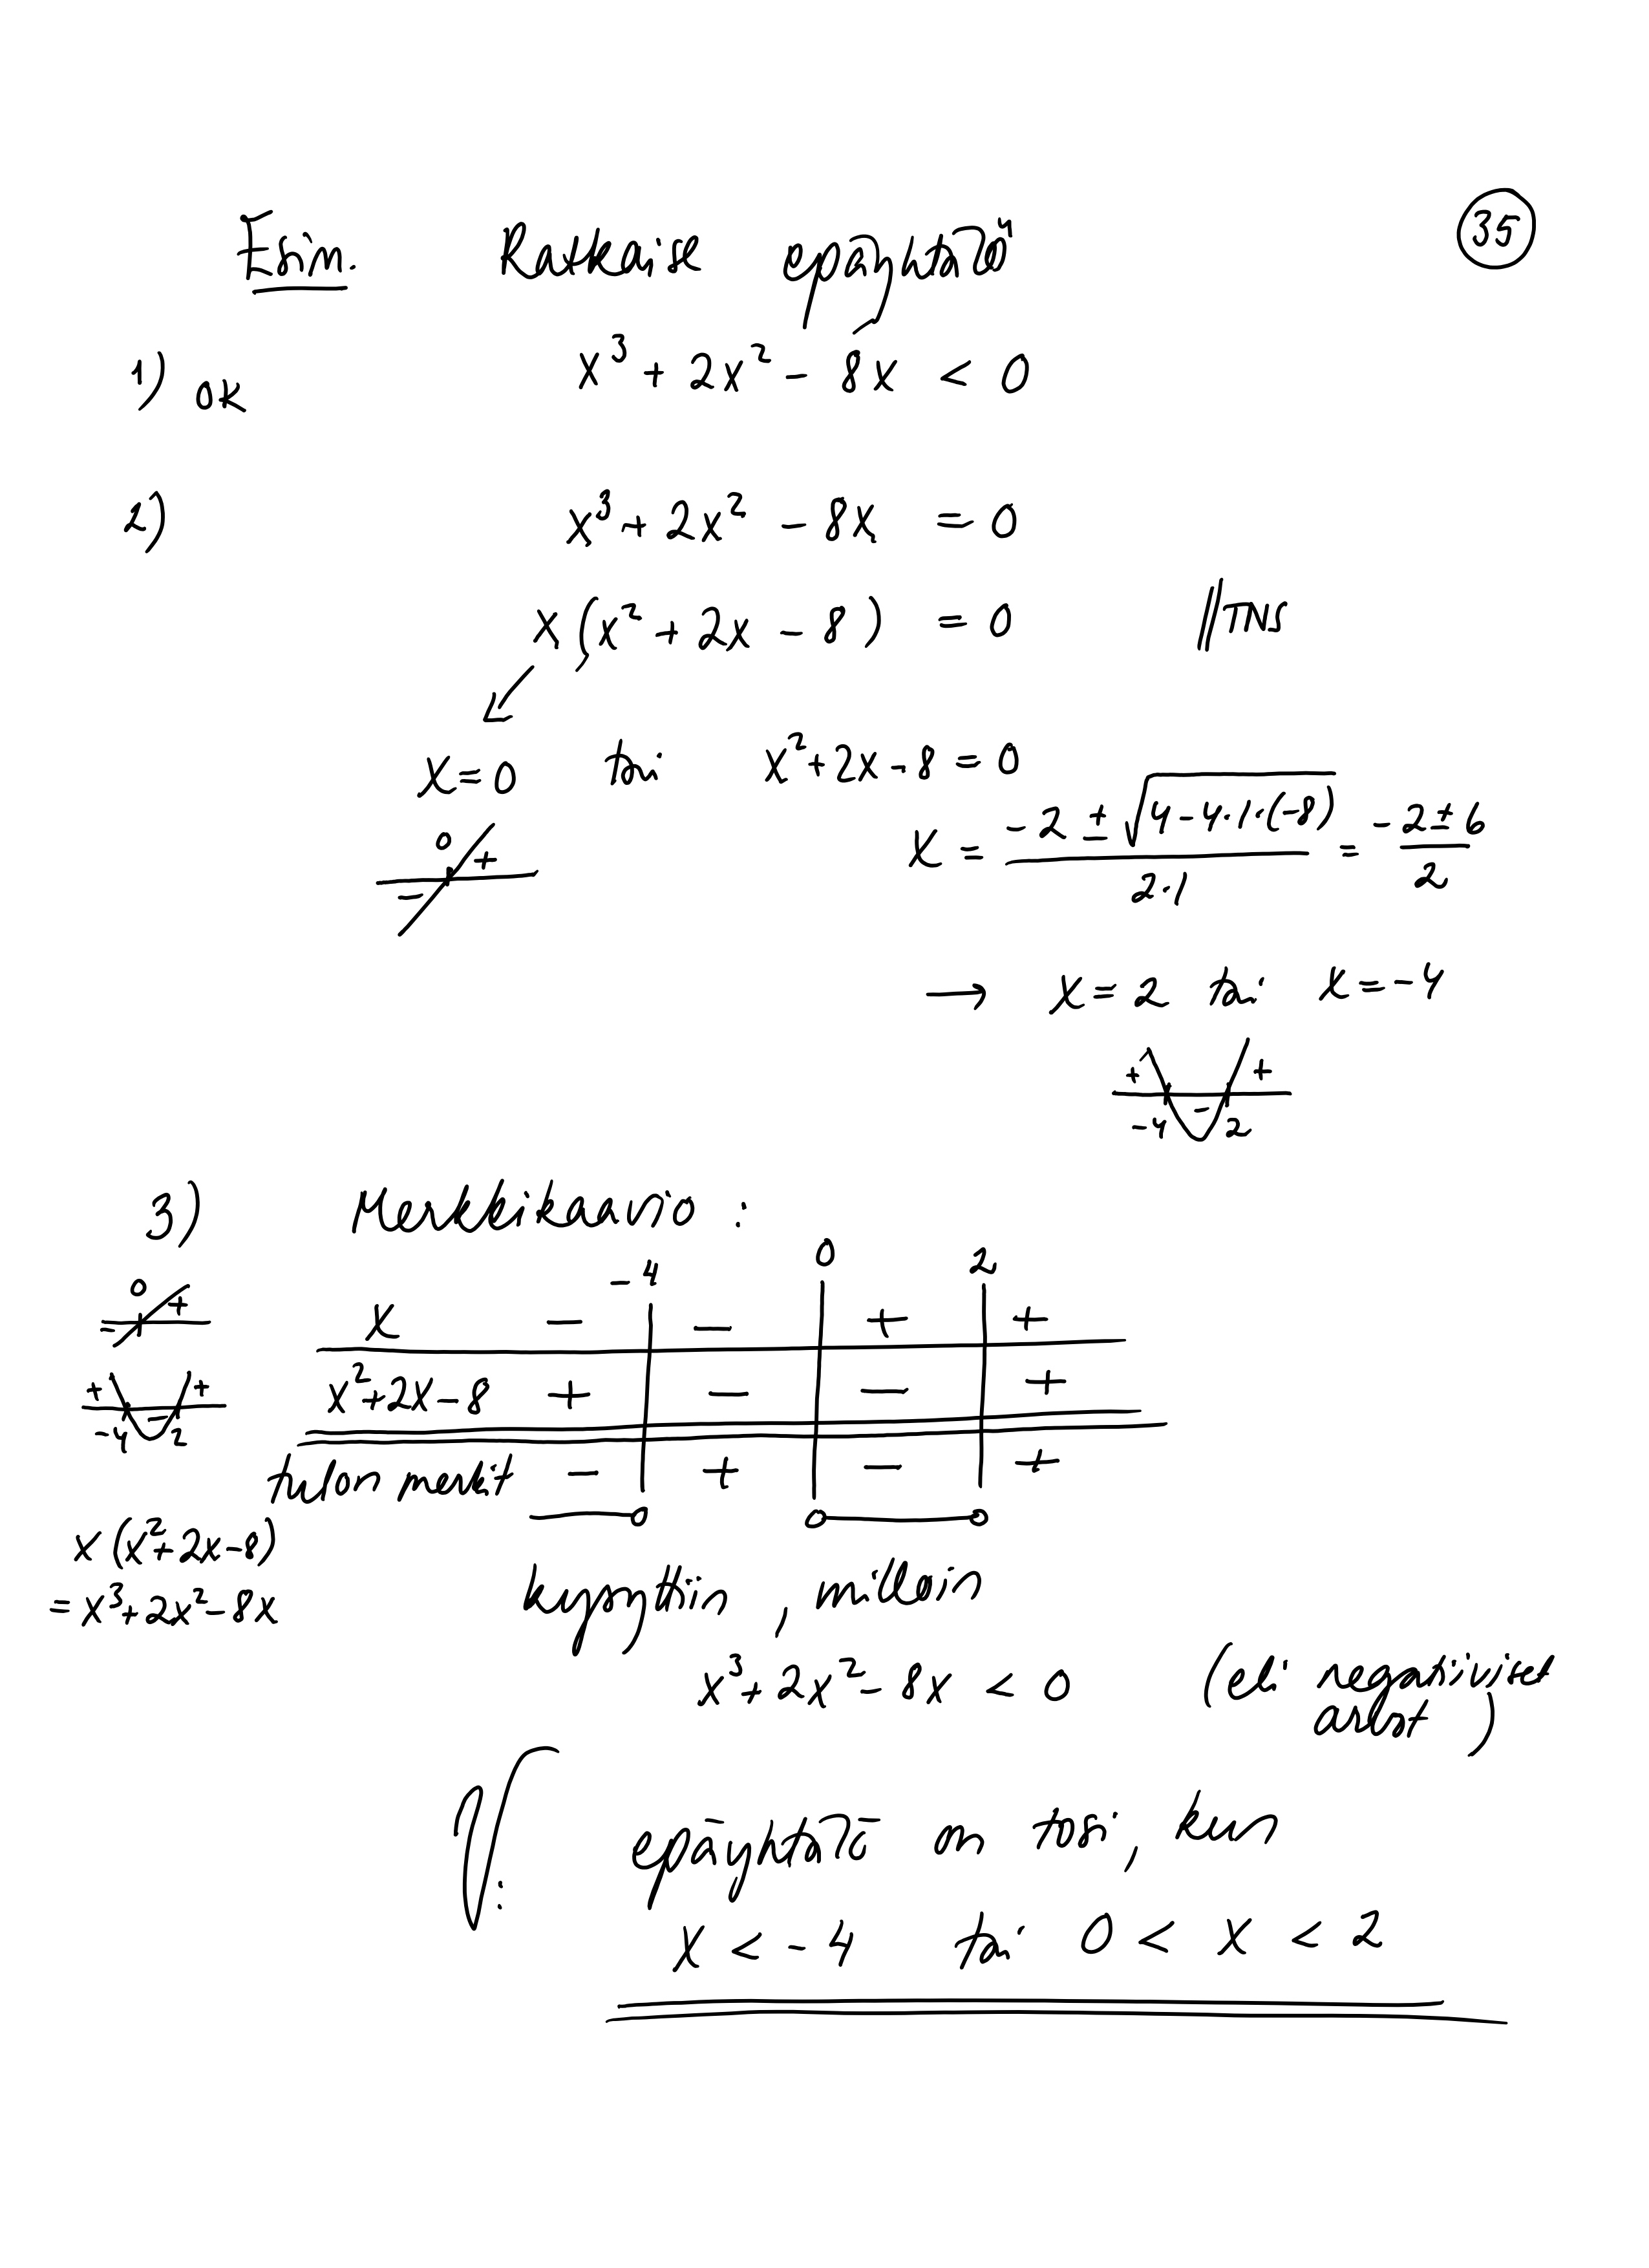 35
Esim. Ratkaise epäyhtälö
1) OK x³ + 2x² - 8x < 0
2) x³ + 2x² - 8x = 0
x(x² + 2x - 8) = 0 ||TNS
x = 0 tai x² + 2x - 8 = 0
0 + -
x = (-2 ± √(4 - 4·1·(-8)))/(2·1) = (-2 ± 6)/2
→ x = 2 tai x = -4
+ - +
-4 2
3) Merkkikaavio:
-4 0 2
0 + -
x - - + +
+ - +
-4 2
x² + 2x - 8 + - - +
tulon merkit - + - +
x(x² + 2x - 8)
= x³ + 2x² - 8x
kysyttiin, milloin
x³ + 2x² - 8x < 0 (eli negatiiviset
arvot)
V: epäyhtälö on tosi, kun
x < -4 tai 0 < x < 2